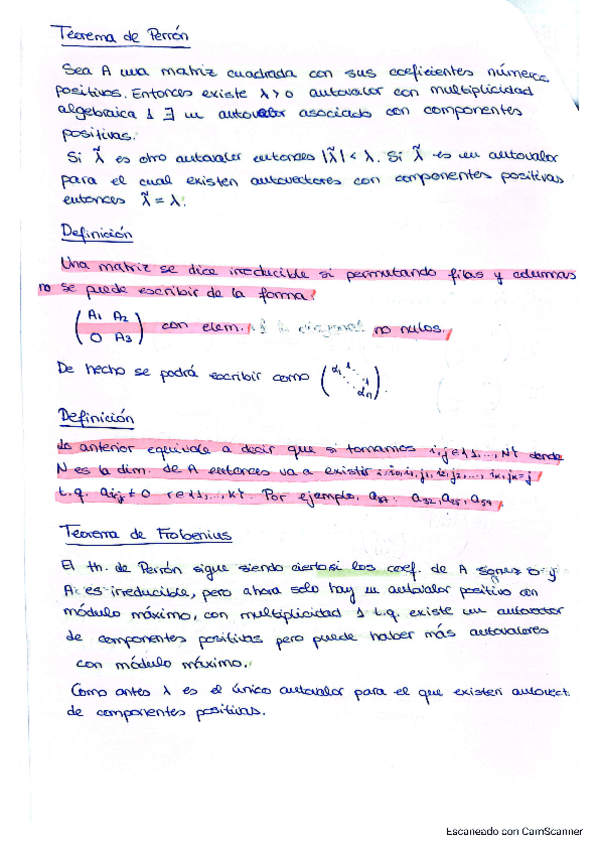 Teorema de Perrón
Sea A una matriz cuadrada con sus coeficientes números
positivos. Entonces existe λ>0 autovalor con multiplicidad
algebraica 1 ∃ un autovalor asociado con componentes
positivas.
Si λ̃ es otro autovalor entonces |λ̃| < λ. Si λ̃ es un autovalor
para el cual existen autovectores con componentes positivas
entonces λ̃ = λ.
Definición
Una matriz se dice irreducible si permutando filas y columnas
no se puede escribir de la forma:
(A₁ A₂
O A₃) con elem. no nulos.
De hecho se podrá escribir como (α₁ 1 ⋱ 1 αₙ).
Definición
Lo anterior equivale a decir que si tomamos i,j ∈ {1,..., N} donde
N es la dim. de A entonces va a existir i=i₀, i₁, j₁, i₂, j₂, ..., iₖ, jₖ=j
t.q. ≠ 0 r ∈ {1,..., k}. Por ejemplo, a₃₂, a₂₅, a₅₄
Teorema de Frobenius
El th. de Perrón sigue siendo cierto si los coef. de A 0 y
A es irreducible, pero ahora solo hay un autovalor positivo con
módulo máximo, con multiplicidad 1 t.q. existe un autovector
de componentes positivas pero puede haber más autovalores
con módulo máximo.
Como antes λ es el único autovalor para el que existen autovect.
de componentes positivas.
Escaneado con CamScanner